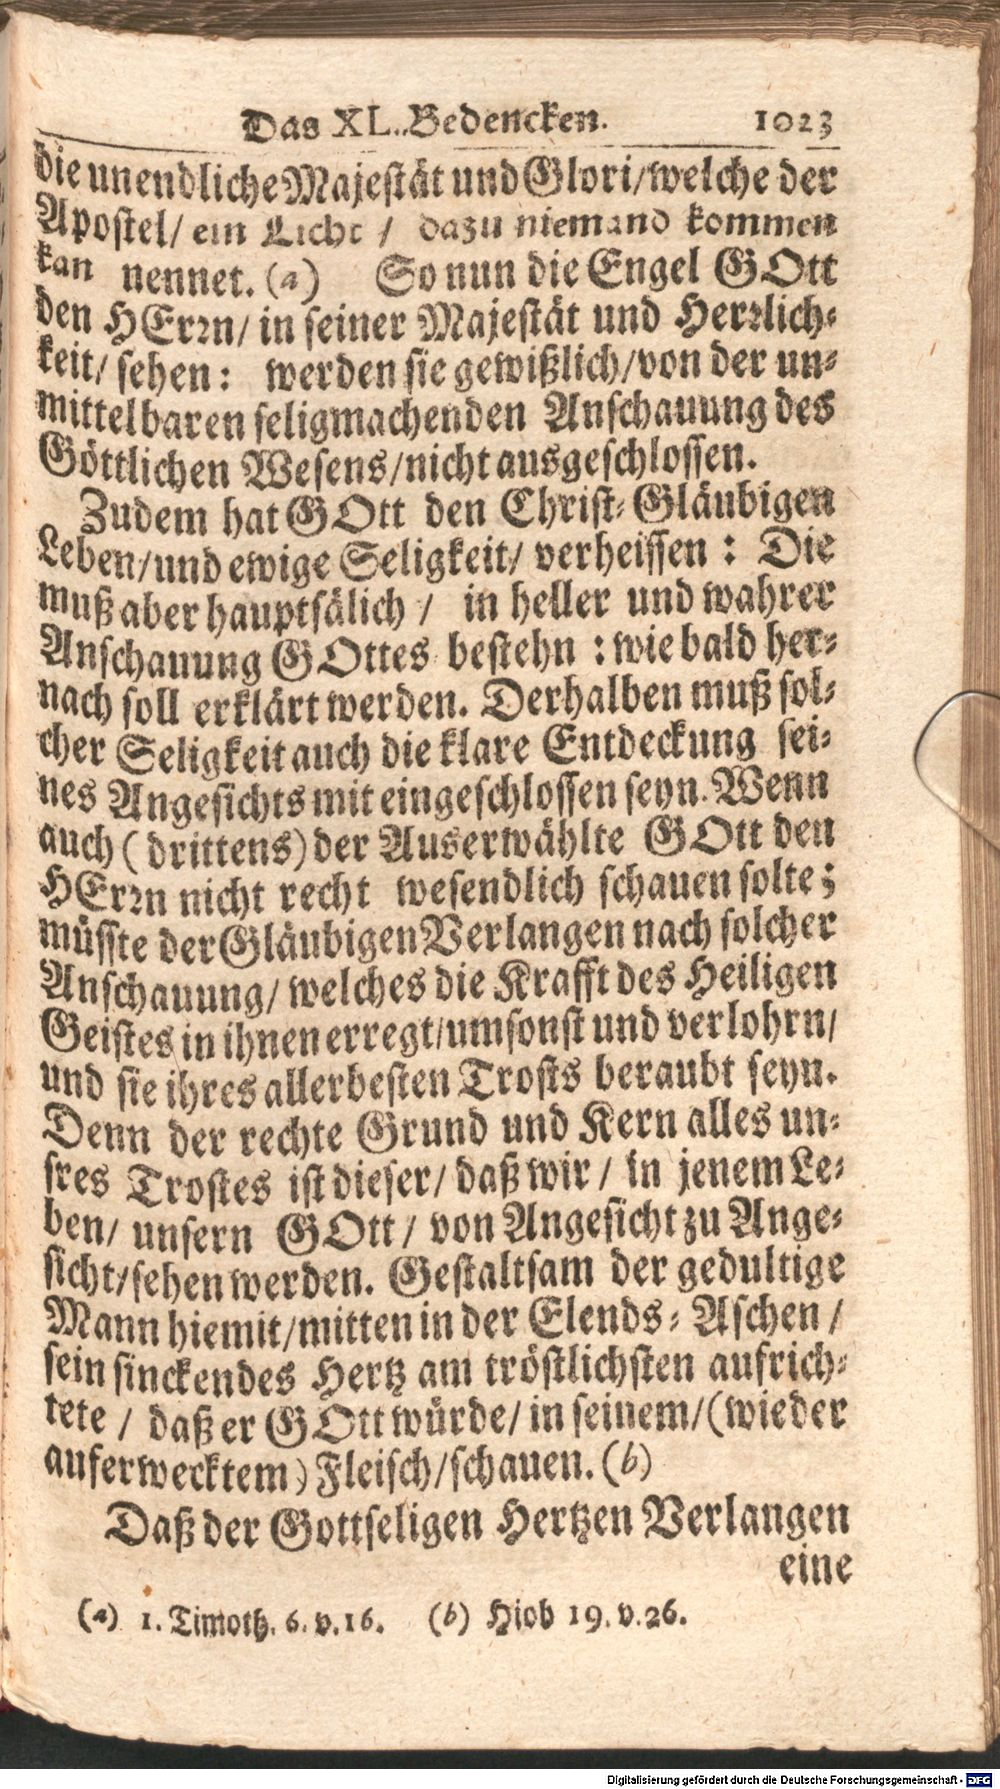 Das XL. Bedencken. 1023
die unendliche Majestät und Glori/welche der
Apostel/ ein Licht / dazu niemand kommen
kan nennet. (a) So nun die Engel GOtt
den HErꝛn/ in seiner Majestät und Herꝛlich-
keit/ sehen: werden sie gewißlich/von der un-
mittelbaren seligmachenden Anschauung des
Göttlichen Wesens/nicht ausgeschlossen.
Zudem hat GOtt den Christ-Gläubigen
Leben/und ewige Seligkeit/ verheissen: Die
muß aber hauptsälich / in heller und wahrer
Anschauung GOttes bestehn : wie bald her-
nach soll erklärt werden. Derhalben muß sol-
cher Seligkeit auch die klare Entdeckung sei-
nes Angesichts mit eingeschlossen seyn. Wenn
auch ( drittens) der Auserwählte GOtt den
HErꝛn nicht recht wesendlich schauen solte;
müsste der Gläubigen Verlangen nach solcher
Anschauung/ welches die Krafft des Heiligen
Geistes in ihnen erregt/umsonst und verlohrn/
und sie ihres allerbesten Trosts beraubt seyn.
Denn der rechte Grund und Kern alles un-
sres Trostes ist dieser/ daß wir / in jenem Le-
ben/ unsern GOtt / von Angesicht zu Ange-
sicht/sehen werden. Gestaltsam der gedultige
Mann hiemit/mitten in der Elends-Aschen /
sein sinckendes Hertz am tröstlichsten aufrich-
tete / daß er GOtt würde/ in seinem/(wieder
auferwecktem) Fleisch/schauen. (b)
Daß der Gottseligen Hertzen Verlangen
eine
(a) 1. Timoth. 6. v. 16. (b) Hiob 19. v. 26.
Digitalisierung gefördert durch die Deutsche Forschungsgemeinschaft - DFG